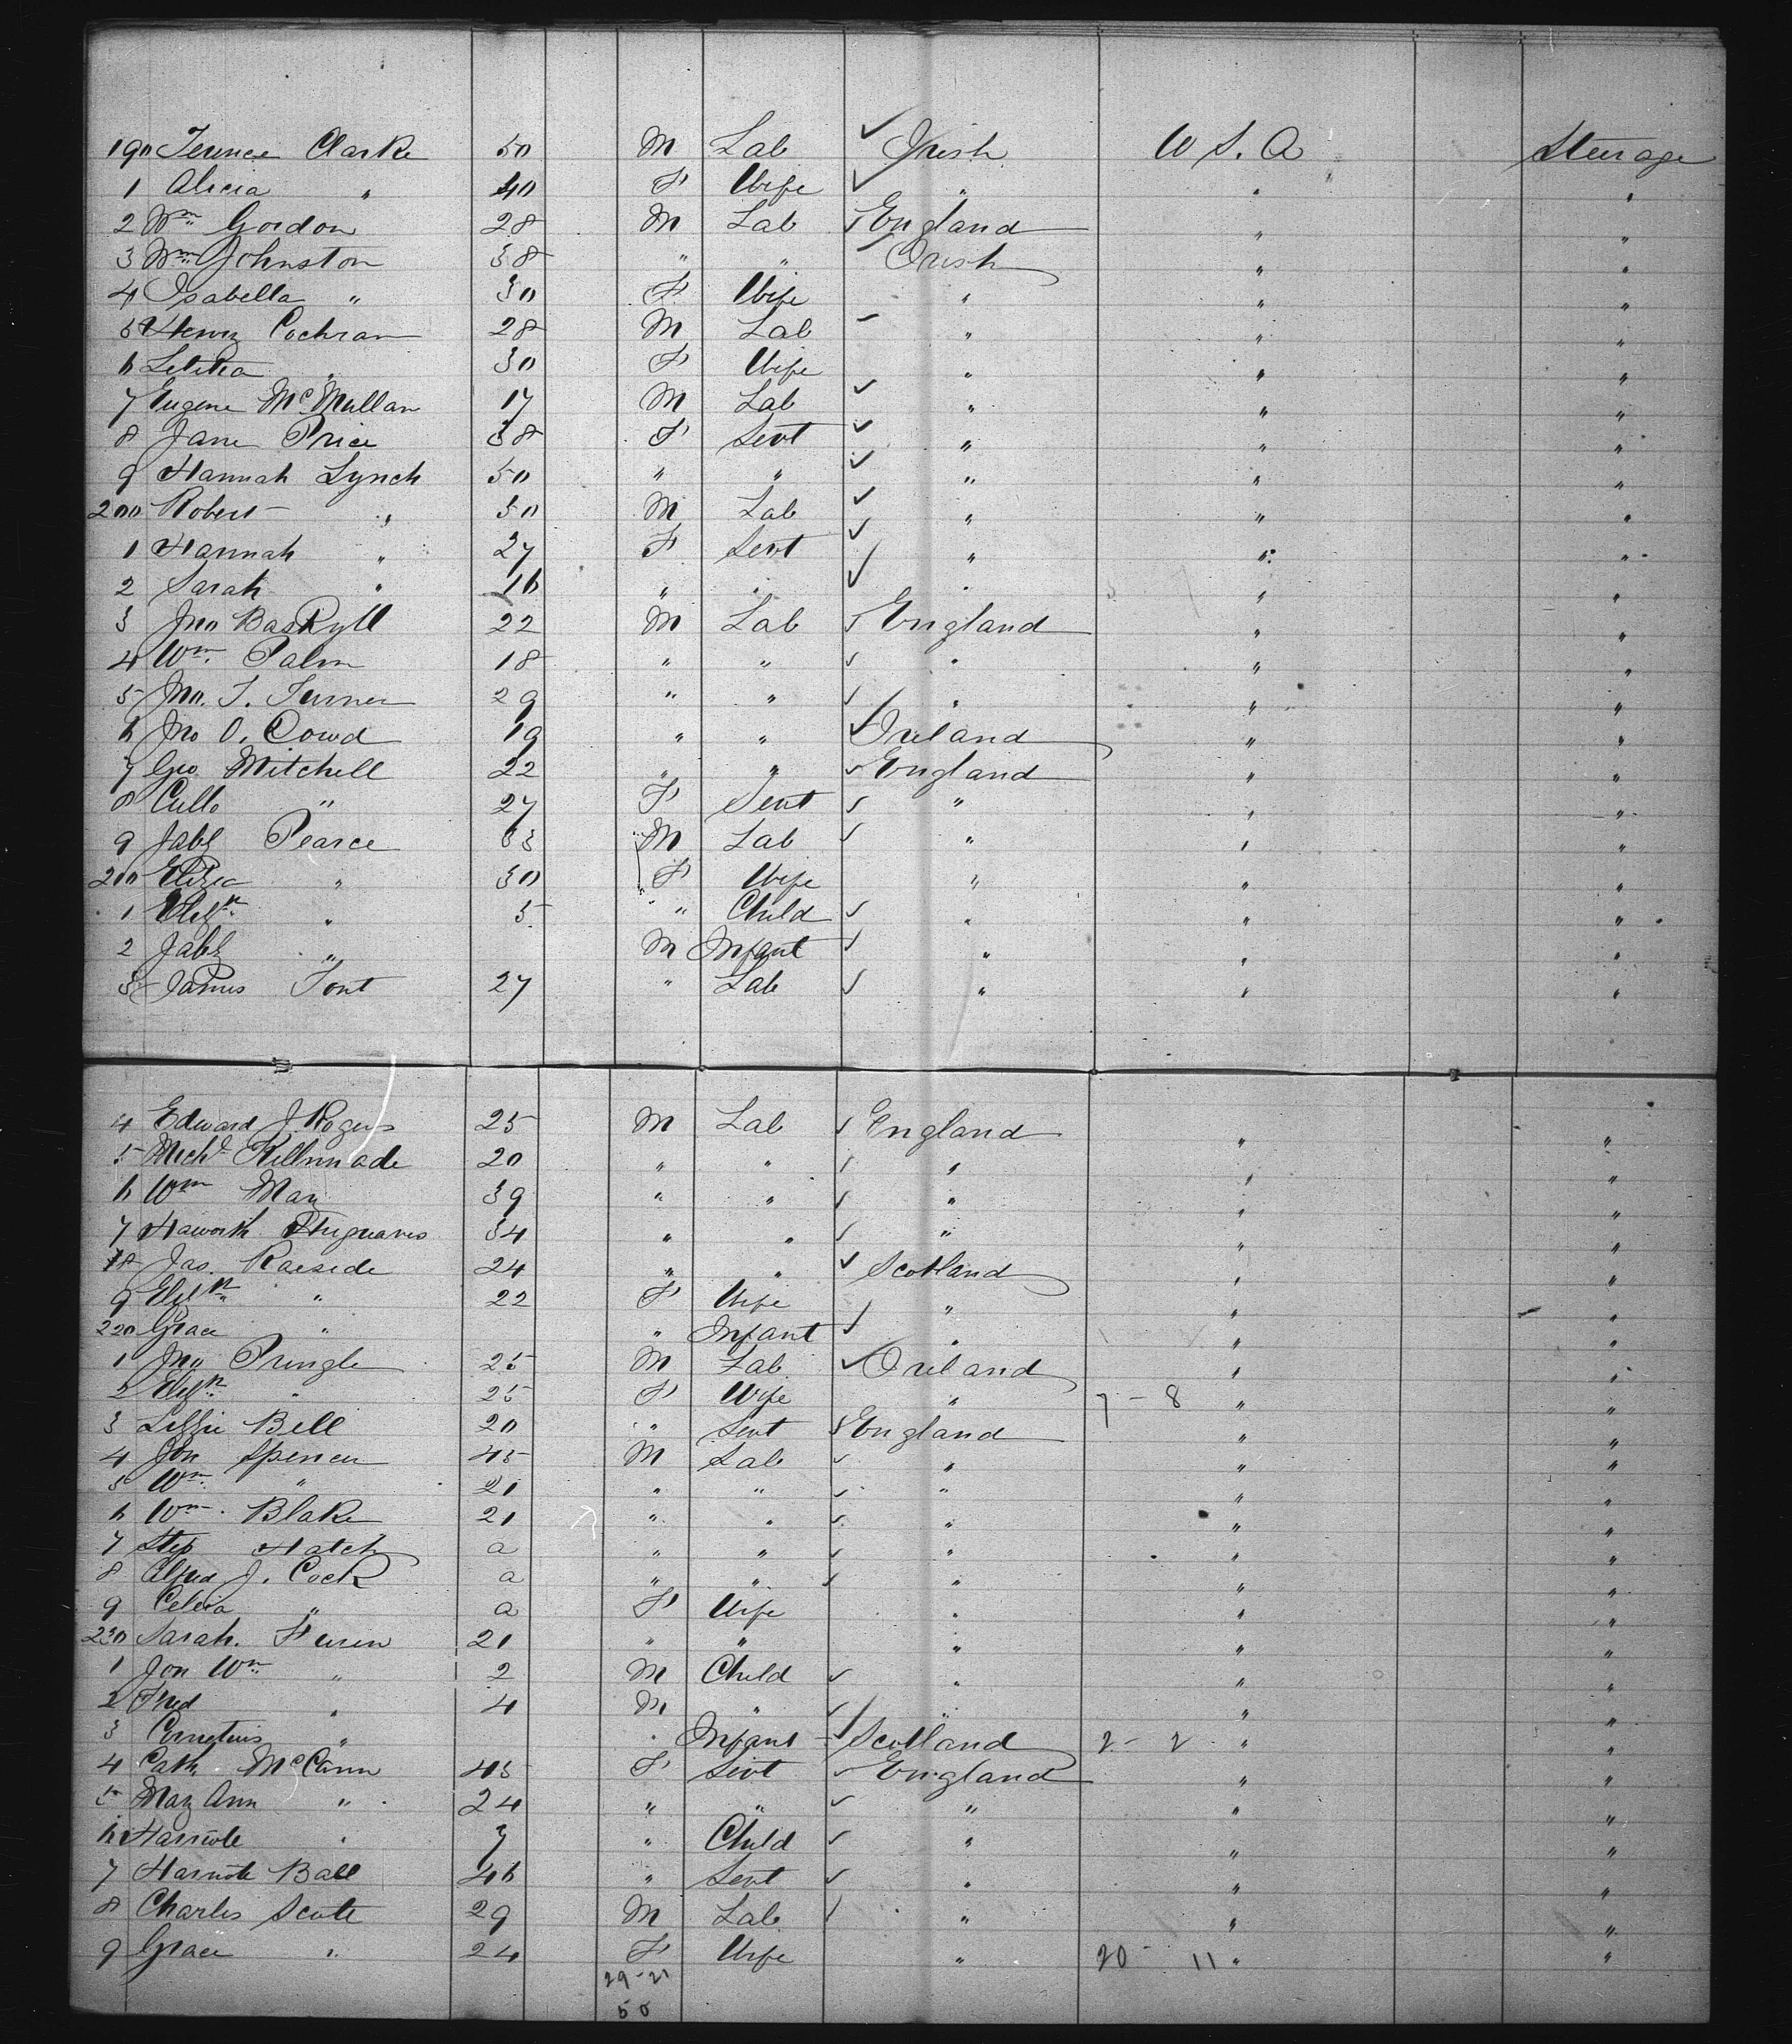 190 Terence Clarke 50 M Lab ✓ Irish U S. A Steerage
1 Alicia " 40 F Wife ✓ " " "
2 Wm Gordon 28 M Lab ✓ England " "
3 Wm Johnston 38 " " Irish " "
4 Isabella " 30 F Wife " " "
5 Henry Cochran 28 M Lab " " "
6 Letitia " 30 F Wife " " "
7 Eugene McMullan 17 M Lab ✓ " " "
8 Jane Price 38 F Servt ✓ " " "
9 Hannah Lynch 50 " " ✓ " " "
200 Robert " 50 M Lab ✓ " " "
1 Hannah " 27 F Servt ✓ " " "
2 Sarah " 16 " " ✓ " " "
3 Jno Baskyll 22 M Lab ✓ England " "
4 Wm. Palm 18 " " ✓ " " "
5 Jno. T. Turner 29 " " ✓ " " "
6 Jno O. Dowd 19 " " ✓ Ireland " "
7 Geo Mitchell 22 " " ✓ England " "
8 " 27 F Servt ✓ " " "
9 Jabz Pearce 33 M Lab ✓ " " "
200 Eliza " 30 F Wife " " "
1 Elizth " 5 " Child ✓ " " "
2 Jabz " M Infant ✓ " " "
3 James Font 27 " Lab ✓ " " "
4 Edward J. Rogers 25 M Lab ✓ England " "
5 Michl 20 " " ✓ " " "
6 Wm May 39 " " ✓ " " "
7 Haworth 34 " " ✓ " " "
18 Jas. Raeside 24 " " ✓ Scotland " "
9 Elizth " 22 F Wife ✓ " " "
220 Grace " " Infant ✓ " " "
1 Jno Pringle 25 M Lab ✓ Ireland "
2 Elizth " 25 F Wife " 7 - 8 " "
3 Lizzie Bell 20 " Servt ✓ England " "
4 Jon Spencer 45 M Lab ✓ " " "
5 Wm. " 21 " " ✓ " " "
6 Wm. Blake 21 " " ✓ " " "
7 Step Hatch a " " ✓ " " "
8 Alfred J. Cock a " " ✓ " " "
9 Celia " a F Wife " " "
230 Sarah. 21 " " " " "
1 Jon Wm " 2 M Child ✓ " " "
2 Fred " 4 M " ✓ " " "
3 Cornelius " " Infant ✓ Scotland 2 - 2 " "
4 Cath. McCann 45 F Servt ✓ England " "
5 Mary Ann " 24 " " ✓ " " "
6 Harriote " 7 " Child ✓ " " "
7 Harriote Ball 46 " Servt ✓ " " "
8 Charles Scott 29 M Lab ✓ " " "
9 Grace " 24 F Wife " 20 - 11 " "
29 - 21
50